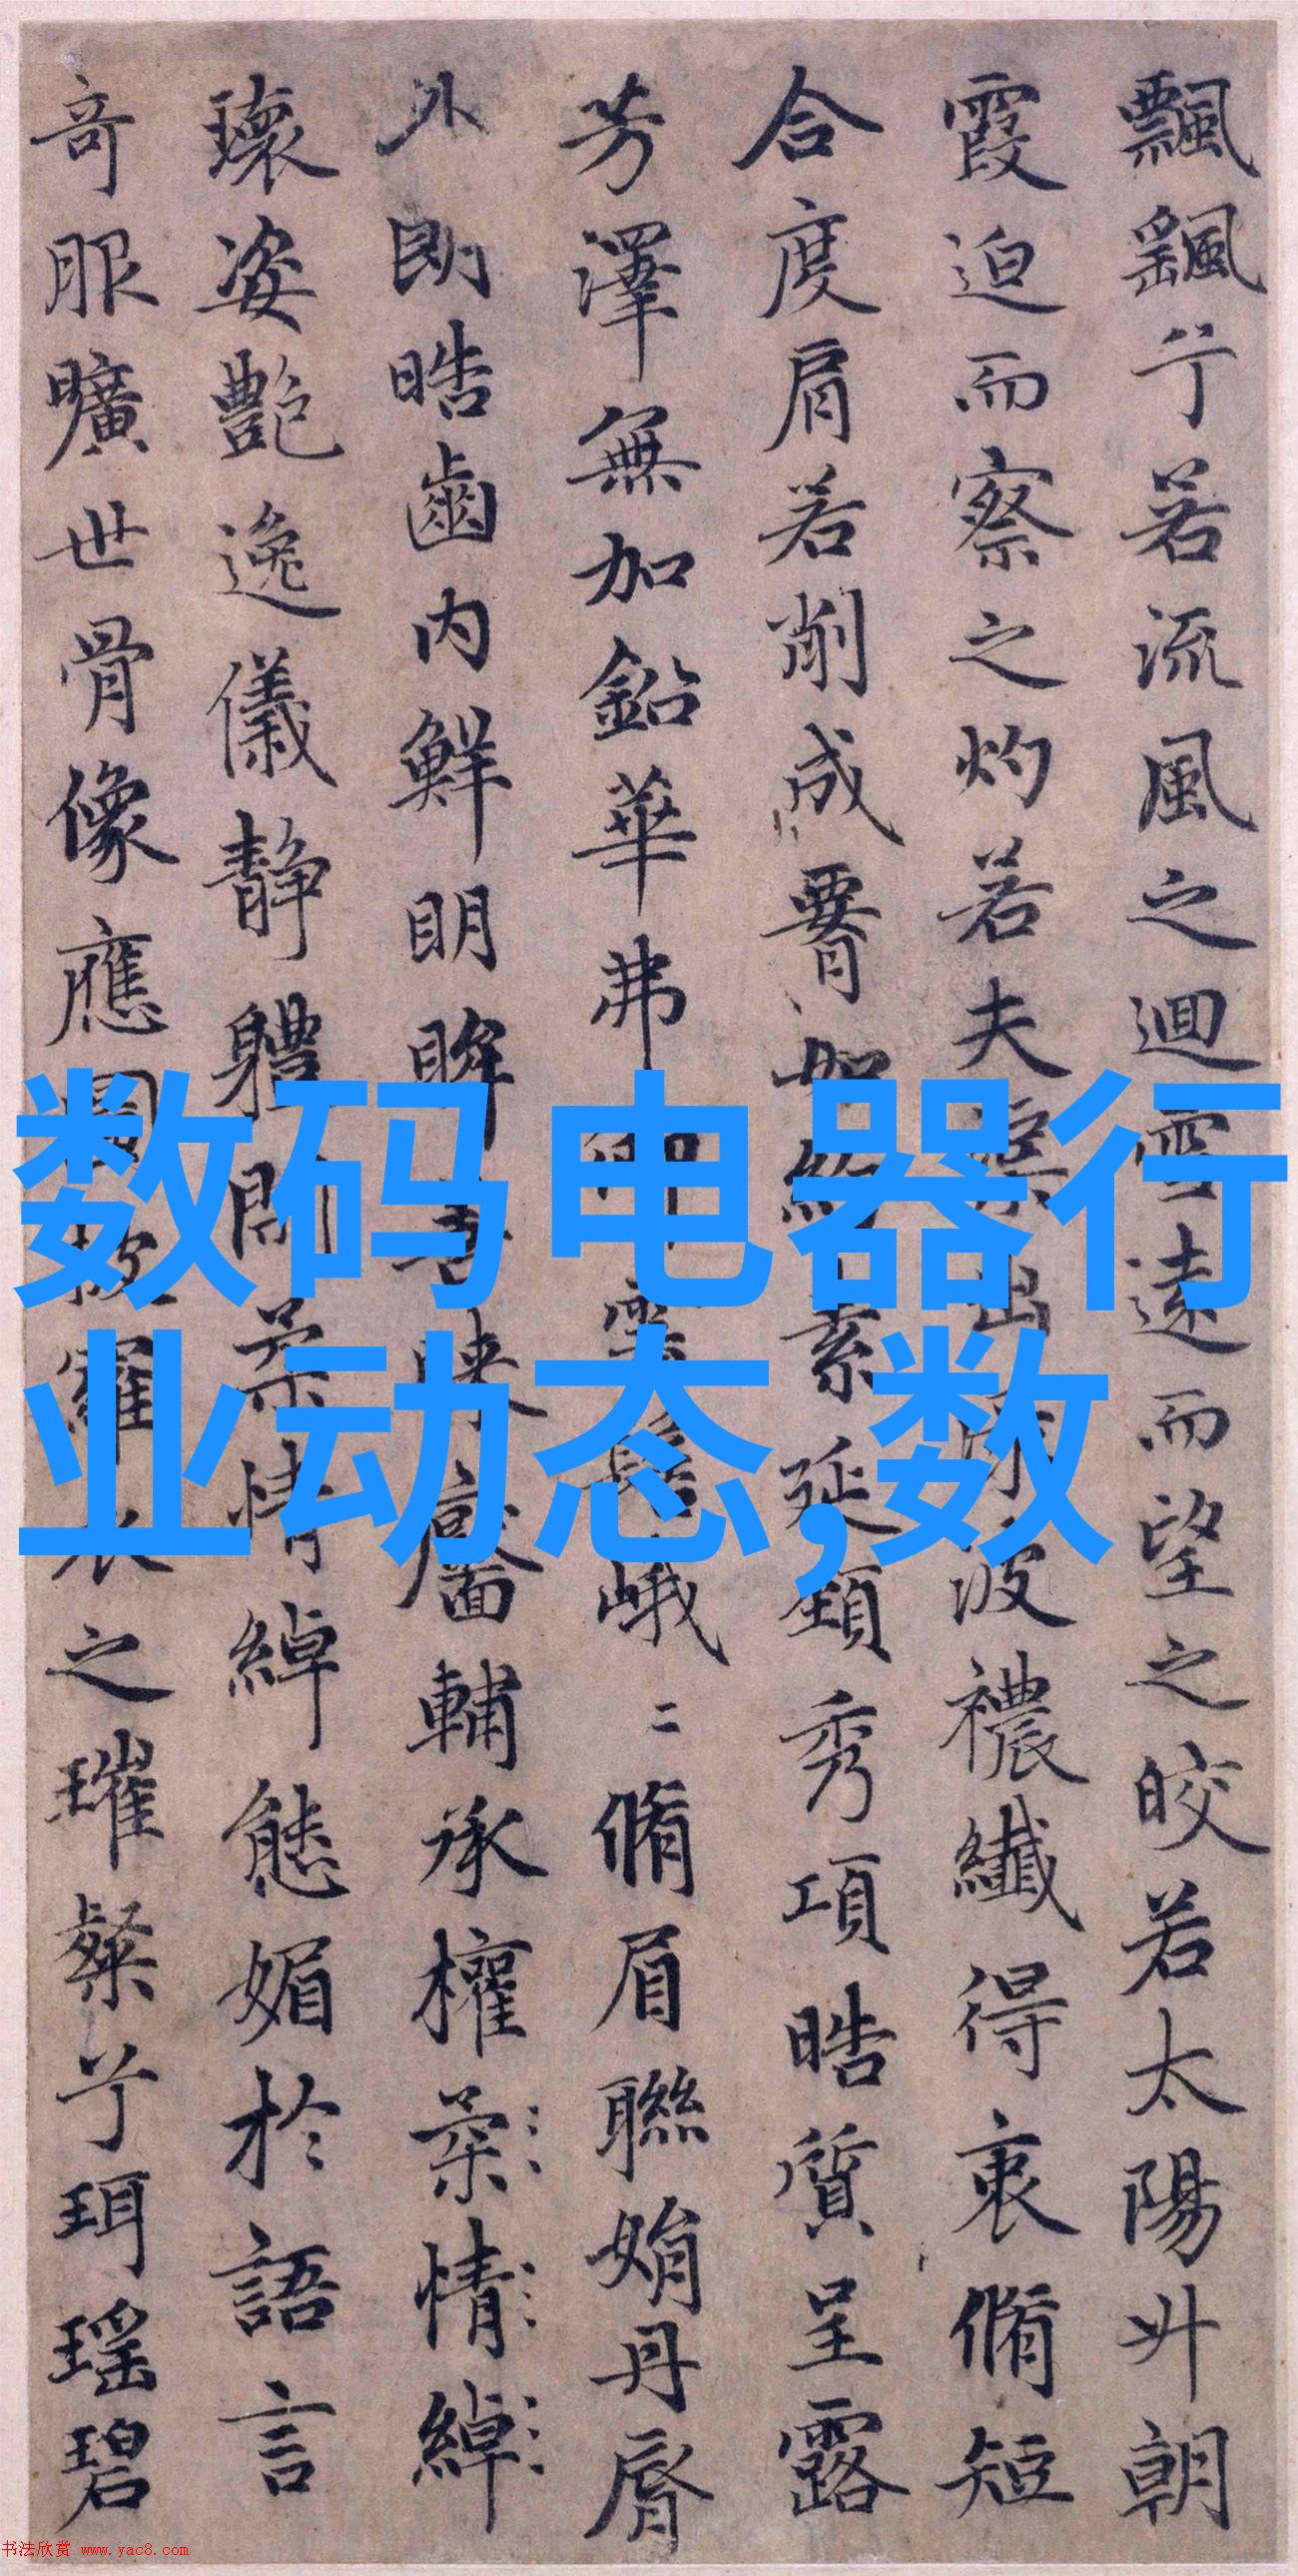 飄飖兮若流風之迴雪遠而望之皎若太陽升朝
霞迫而察之灼若夫出波襛纖得衷脩短
合度肩若削成腰如約素延頸秀項晧質呈露
芳澤無加鉛華弗御雲髻峨二脩眉聯娟丹脣
外朗晧齒内鮮明眸善睞靨輔承權柔情綽
瓌姿艷逸儀静體閑柔情綽態媚於語言
奇服曠世骨像應圖披羅衣之璀粲兮珥瑤碧
数码电器行
业动态,数
书法欣赏 www.yac8.com